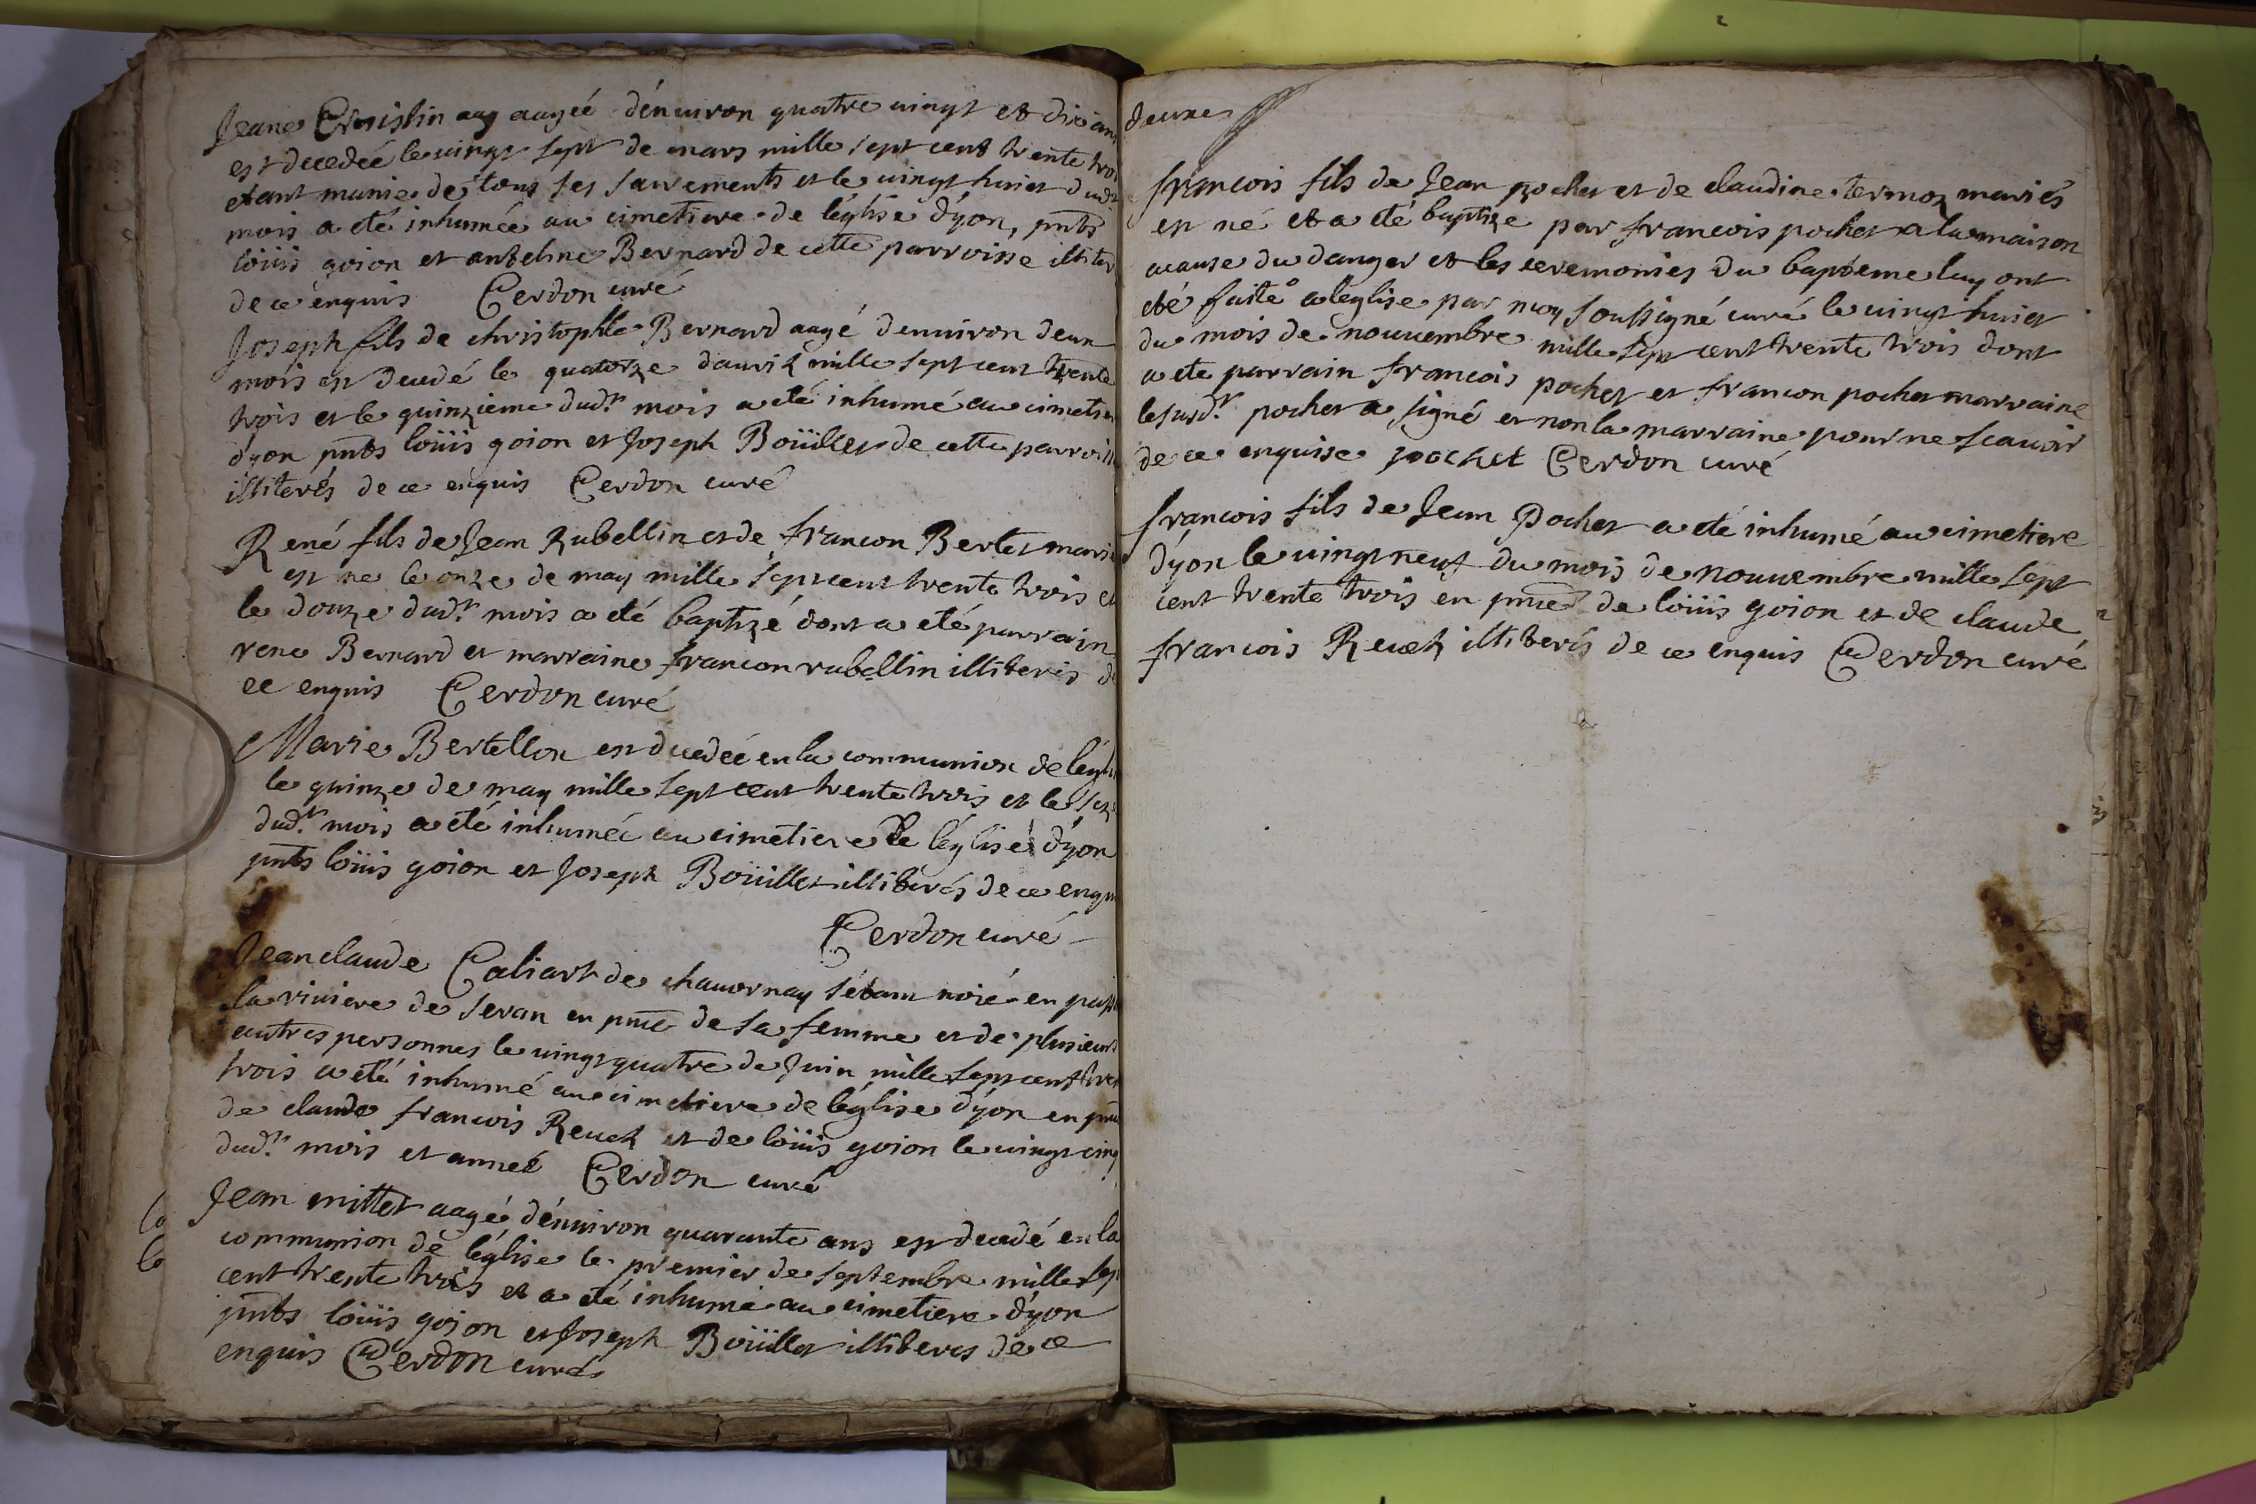 Jeane Cruistin aagéé dénuiron quatre uingt et dix ans
est decedéé le uingt sept de mars mille sept cent trente trois
etant munie de tous ses sacrements et le uingt huict dudt
mois a été inhumée au cimetiere de léglise dÿon, pnts
loüis goion et antelme Bernard de cette parroisse illiter
de ce enquis Cerdon curé
Joseph fils de christophle Bernard aagé denuiron deun
mois est decedé le quatorze dauril mille sept cent trente
trois et le quinzieme dudt mois a été inhumé au cimetier
dÿon pnts loüis goion et Joseph Boüillet de cette parroiss
illiterés de ce enquis Cerdon curé
René fils de Jean Rubellin et de francon Bertet mariés
est ne le onze de may mille sept cent trente trois et
le douze dudt mois a été baptizé dont a été parrain
rene Bernard et marraine francon rubellin illiteris de
ce enquis Cerdon curé
Marie Bertellon est decedéé en la communion de légli
le quinze de may mille sept cent trente trois et le seze
dudt mois a été inhuméé au cimetiere de léglise dÿon
pnts loüis goion et Joseph Boüillet illiterés de ce enqu
Cerdon curé
Jean claude Caliart de chauornay sétant noié en pass
la riuiere de seran en pnce de sa femme et de plusieurs
autres personnes le uingt quatre de Juin mille sept cent tren
trois a été inhumé au cimetiere de léglise dÿon en pnce
de claude francois Reuet et de loüis goion le uingt cinq
dudt mois et année Cerdon curé
Jean millet aagé dénuiron quarante ans est decedé en la
communion de léglise le premier de septembre mille sept
cent trente trois et a été inhumé au cimetiere dÿon
pnts loüis goion et Joseph Boüillet illiteres de ce
enquis Cerdon curé
francois fils de Jean pochet et de claudine termoz mariés
est né et a été baptize par francois pochet a la maison
acause du danger et les ceremonies du bapteme luy ont
été faite a léglise par moy soussigné curé le uingt huict
du mois de nouuembre mille sept cent trente trois dont
a ete parrain francois pochet et francon pochet marraine
le susdt pochet a signé et non la marraine pour ne scauoir
de ce enquise pochet Cerdon curé
francois fils de Jean Pochet a été inhumé au cimetiere
dÿon le uingt neuf du mois de nouuembre mille sept
cent trente trois en pnce de loüis goion et de claude
francois Reuet illiterés de ce enquis Cerdon curé